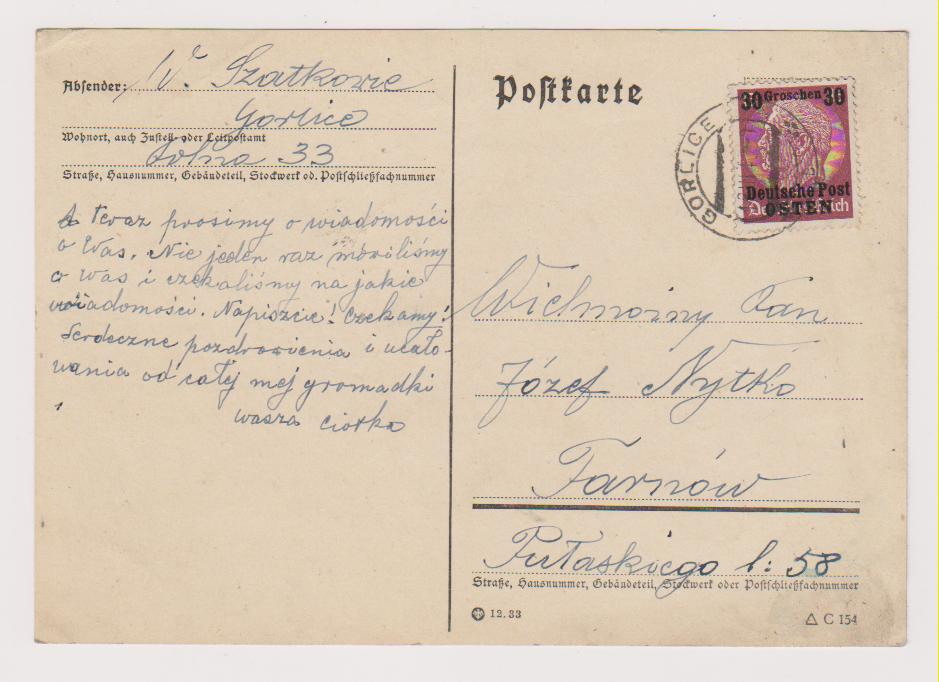 Absender: W. Szatkowic
Gorlice
Wohnort, auch Zustell- oder Leitpostamt
Solna 33
Straße, Hausnummer, Gebäudeteil, Stockwerk od. Postschließfachnummer
A teraz prosimy o wiadomości
o Was. Nie jeden raz mówiliśmy
o Was i czekaliśmy na jakie
wiadomości. Napiszcie! Czekamy!
Serdeczne pozdrowienia i ucało-
wania od całej mej gromadki
wasza ciotka
Postkarte
GORLICE
30 Groschen 30
Deutsche Post
OSTEN
Wielmożny Pan
Józef Nytko
Tarnów
Pułaskiego l: 58
Straße, Hausnummer, Gebäudeteil, Stockwerk oder Postschließfachnummer
12.33
C 154